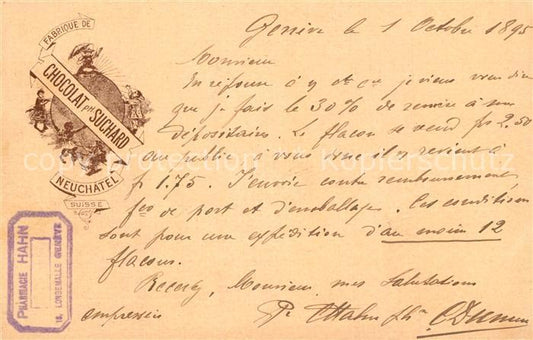 Genève le 1 Octobre 1895
FABRIQUE DE
CHOCOLAT PH. SUCHARD
NEUCHATEL
SUISSE
Monsieur
En réponse à je viens vous dire
que je fais le 30% de remise à mes
dépositaires. Le flacon se vend frs 2.50
au public à vous il revient à
fr 1.75. J'envoie contre remboursement
fco de port et d'emballage. Ces conditions
sont pour une expédition d'au moins 12
flacons.
Recevez, Monsieur, mes Salutations
empressées
Pr Hahn phn
PHARMACIE HAHN
18, LONGEMALLE GENÈVE
copyright protection Kopierschutz